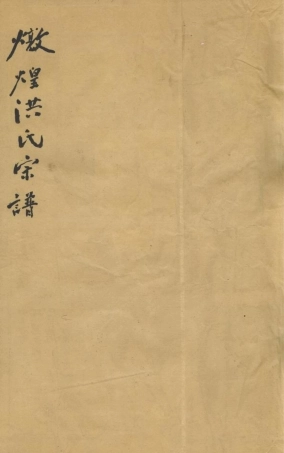 燉煌洪氏宗譜